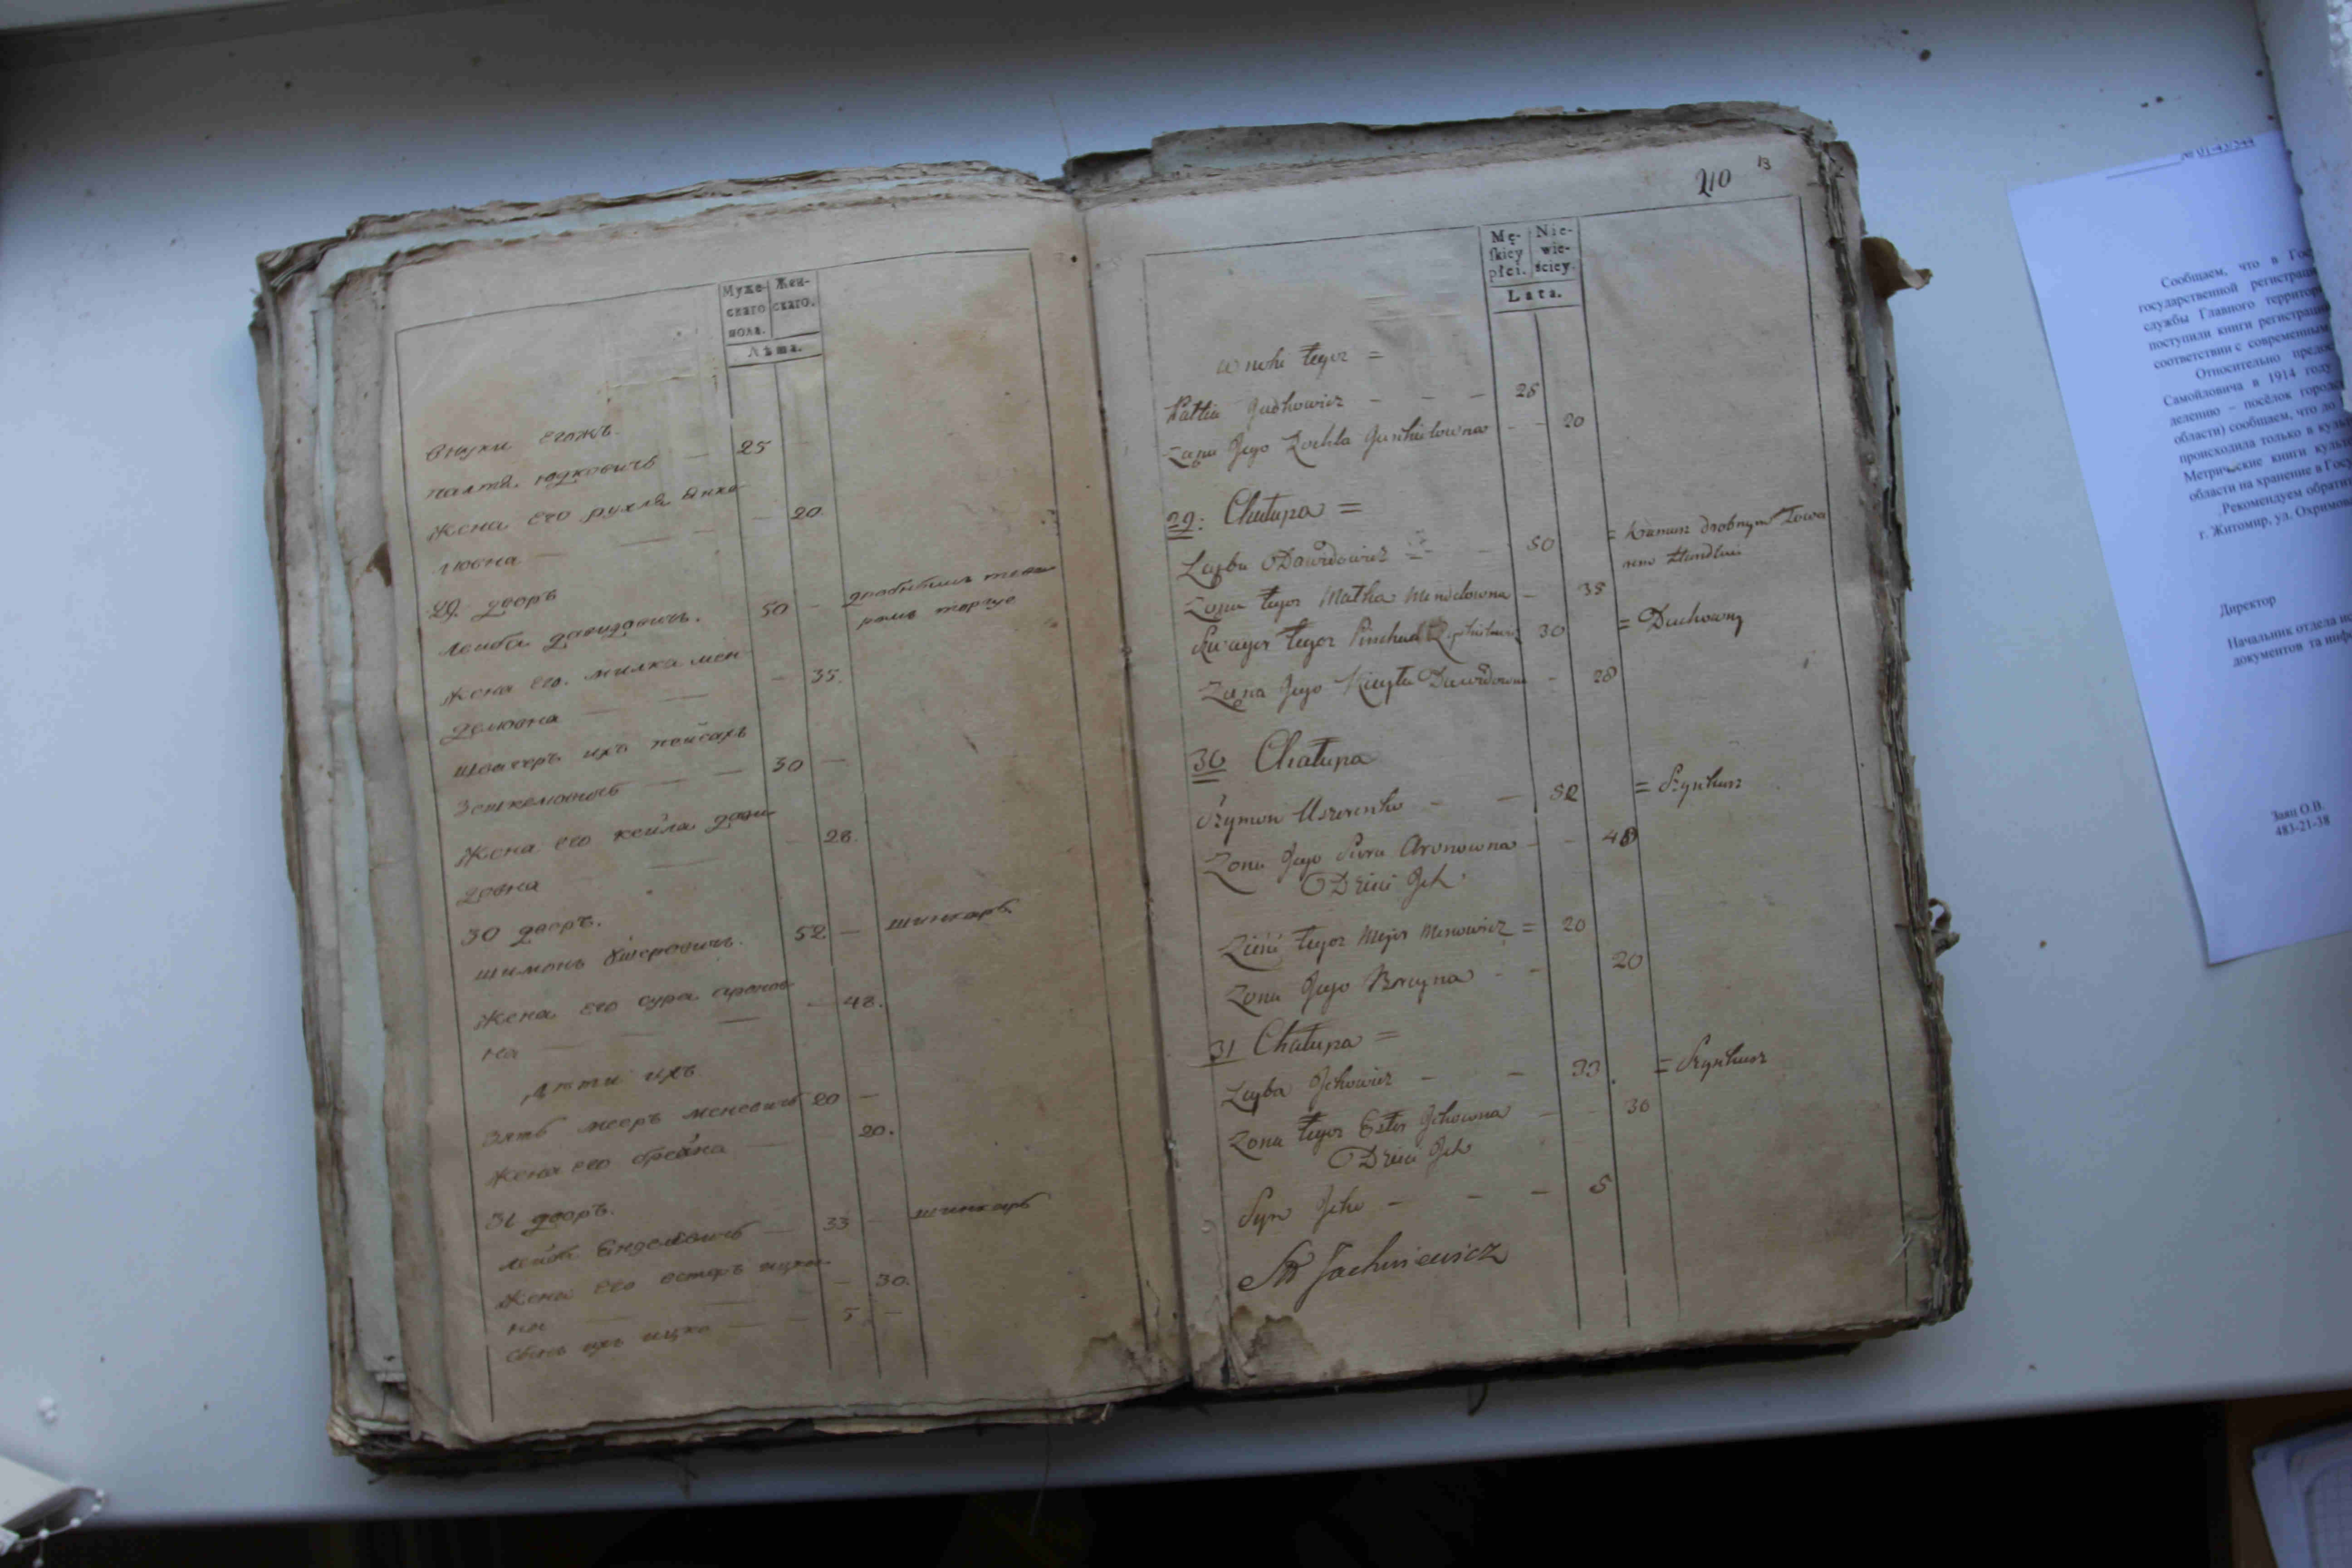 Муже-
скаго
пола.
Жен-
скаго.
Лѣта.
внуки егожъ.
палтя юдковичъ — 25
жена его рухля янке-
лювна — — 20.
29. дворъ
лейба давидовичъ. 50 — дробнымъ това
ромъ торгуе
жена его. милка мен
делювна — — — 35.
швагеръ ихъ пейсахъ
— — 30 —
жена его кейла дави-
довна — — 28.
30 дворъ.
шимонъ ушеровичъ. 52 — шинкаръ
жена его сура аронов
на — — — 48.
дѣти ихъ
зять мееръ меновичъ 20 —
жена его брейна — 20.
31 дворъ.
лейба — 33 — шинкаръ
жена его естеръ ицков
на — — — 30.
сынъ ихъ ицко — — 5 —
210 13
Mę-
skiey
płci.
Nie-
wie-
ściey.
Lata.
wnuki tegoż =
Paltia Judkowicz — — — 25
Żona Jego — — 20
29: Chałupa =
Leyba Dawidowicz = — 50 = Kramarz drobnym Towa
rem Handluie
Żona tegoż Małka Mendelowna — 35
Szwagier tegoż 30 = Duchowny
Żona Jego Kieyła Dawidowna — 28
30 Chałupa
Szymon Uszerenko — — 52 = Szynkarz
Żona Jego Sura Aronowna — — 48
Dzieci Ich
Zięć tegoż Mejer Menowicz = 20
Żona Jego Breyna — — 20
31 Chałupa =
Leyba Ickowicz — — 33. = Szynkarz
Żona tegoż Ester Ickowna — — 30
Dzieci Ich
Syn Icko — — — 5
Jachimowicz
№ 01-43/544
Сообщаем, что в Гос
государственной регистраци
службы Главного территор
поступили книги регистраци
соответствии с современным
Относительно предос
Самойловича в 1914 году
делению – посёлок городс
области) сообщаем, что до
происходила только в куль
Метрические книги куль
области на хранение в Гос
Рекомендуем обратит
г. Житомир, ул. Охримов
Директор
Начальник отдела ис
документов та инф
Заяц О.В.
483-21-38